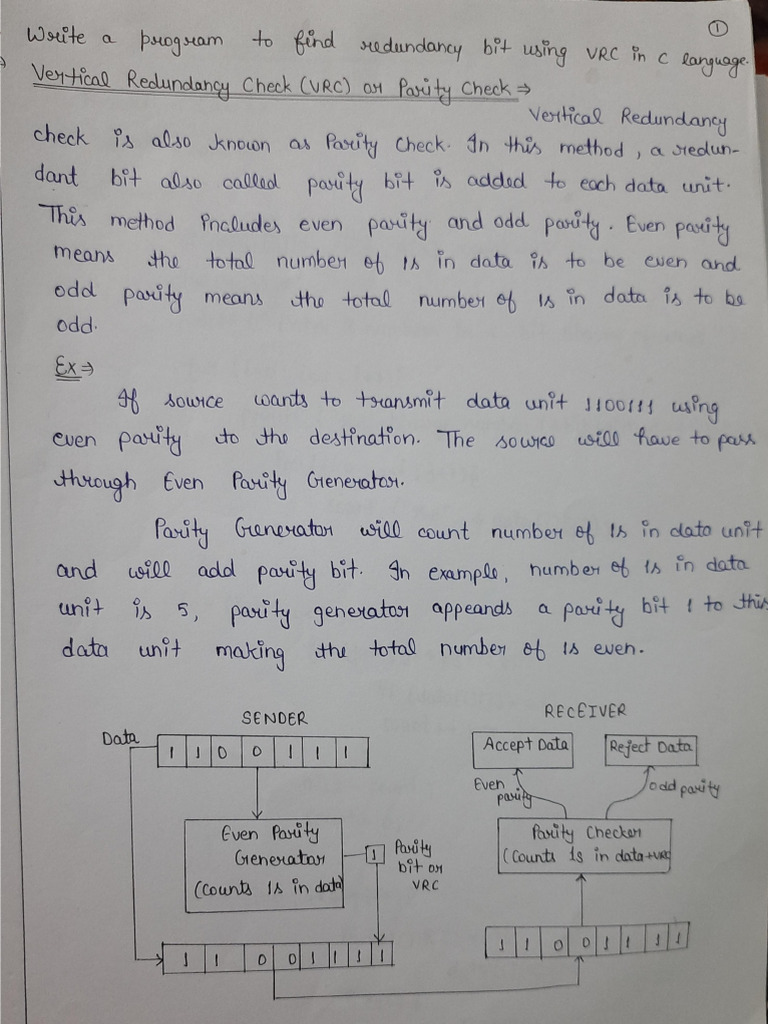 1
Write a program to find redundancy bit using VRC in C language.
Vertical Redundancy Check (VRC) or Parity Check ⇒
Vertical Redundancy
check is also known as Parity Check. In this method, a redun-
dant bit also called parity bit is added to each data unit.
This method includes even parity and odd parity. Even parity
means the total number of 1s in data is to be even and
odd parity means the total number of 1s in data is to be
odd.
Ex ⇒
If source wants to transmit data unit 1100111 using
even parity to the destination. The source will have to pass
through Even Parity Generator.
Parity Generator will count number of 1s in data unit
and will add parity bit. In example, number of 1s in data
unit is 5, parity generator appeands a parity bit 1 to this
data unit making the total number of 1s even.
SENDER
Data
1 1 0 0 1 1 1
Even Parity
Generator
(Counts 1s in data)
1
Parity
bit or
VRC
1 1 0 0 1 1 1 1
RECEIVER
Accept Data
Reject Data
Even
parity
odd parity
Parity Checker
(Counts 1s in data+VRC
1 1 0 0 1 1 1 1